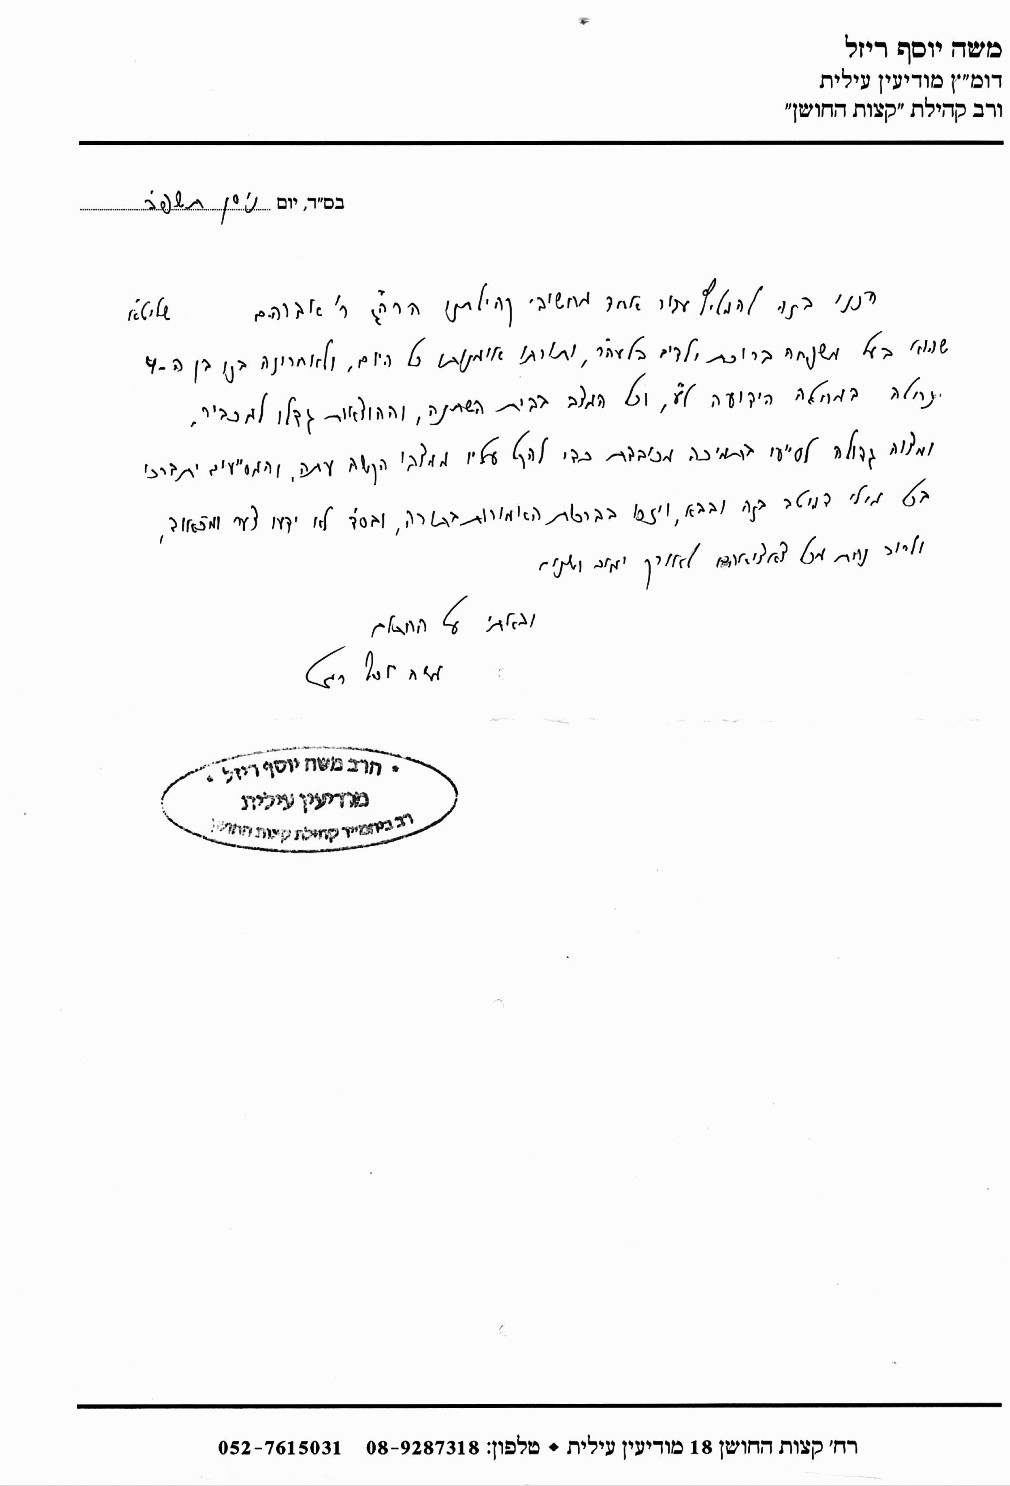 משה יוסף ריזל
דומ"ץ מודיעין עילית
ורב קהילת "קצות החושן"
בס"ד, יום ניסן תשפ"ב
הנני בזה להמליץ עבור אחד מחשובי קהילתנו הרה"ג ר' אברהם שליט"א
שהוא בעל משפחה ברוכת ילדים בלעה"ר, ותורתו אומנותו כל היום, ולאחרונה בנו בן ה-4
חלה במחלה הידועה ל"ע, וכל המצב בבית השתנה, וההוצאות גדלו למכביר.
ומצוה גדולה לסייעו בתמיכה מכובדת כדי להקל עליו ממצבו הקשה עתה, והמסייעים יתברכו
בכל מילי דמיטב בזה ובבא, ויזכו בברכות האמורות בתורה, ובס"ד לא ידעו צער ומכאוב,
ולרוב נחת מכל צאצאיהם לאורך ימים ושנים
ובאתי על החתום
משה יוסף ריזל
הרב משה יוסף ריזל
מודיעין עילית
רב ביהמ"ד קהילת קצות החושן
רח' קצות החושן 18 מודיעין עילית ♦ טלפון: 08-9287318 052-7615031